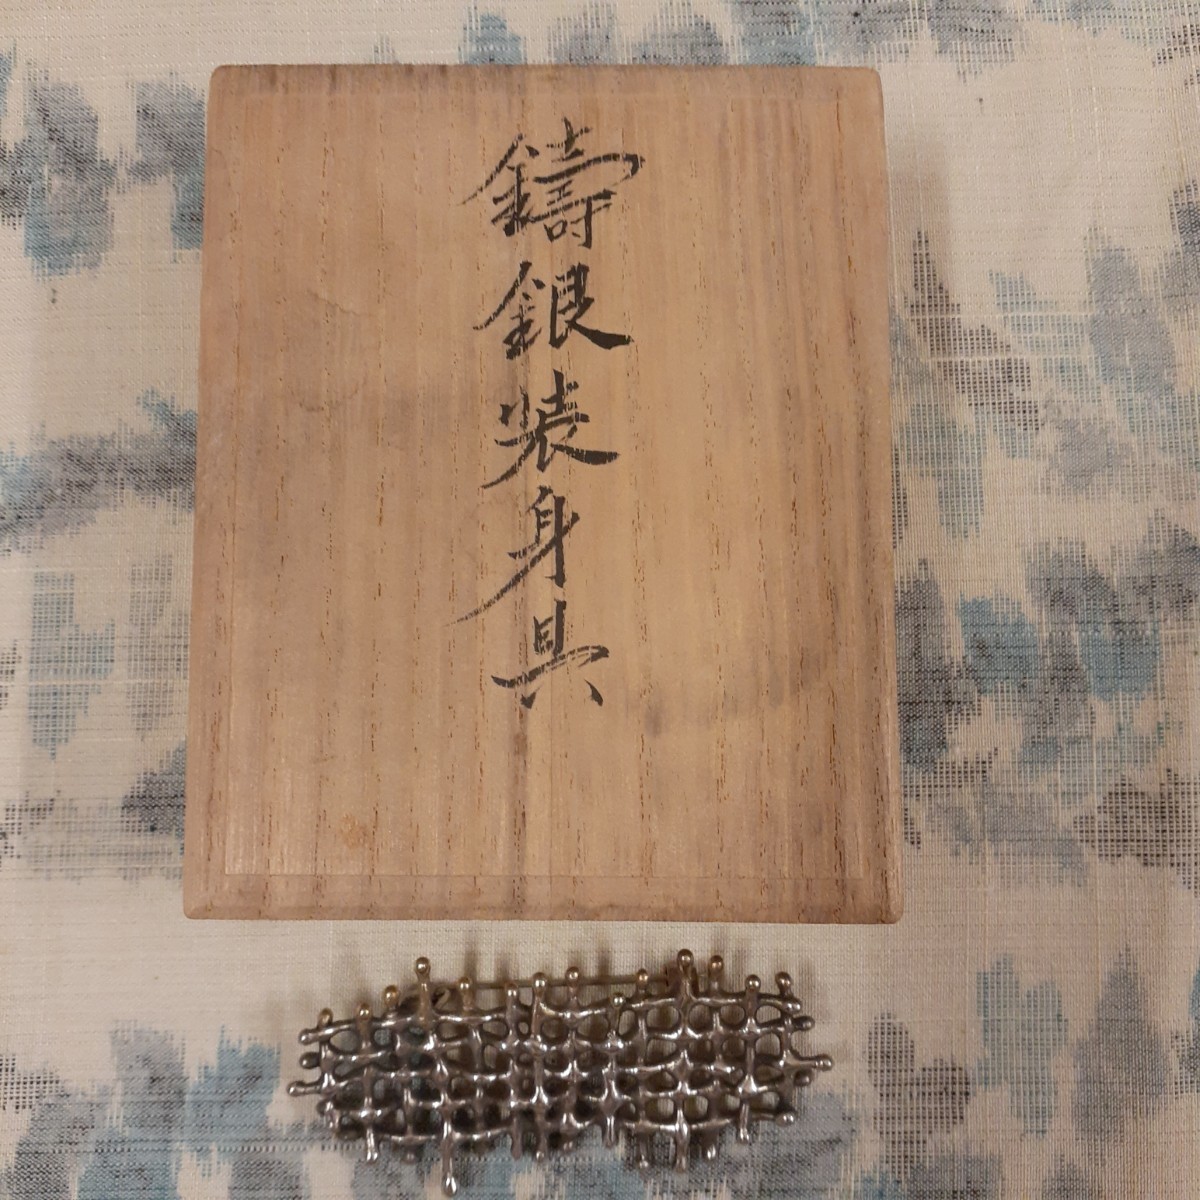 鑄銀装身具